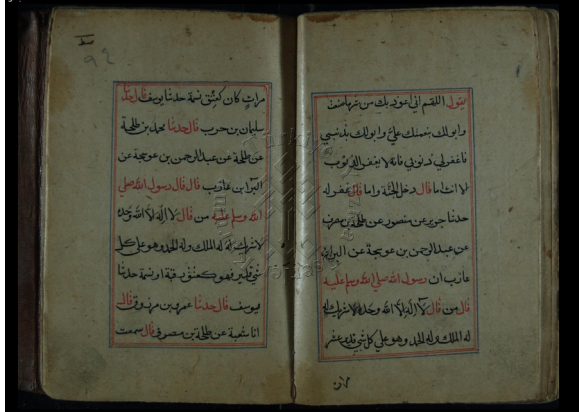 يقول اللهم اني اعوذ بك من شر ما صنعت
وابوء لك بنعمتك علي وابوء لك بذنبي
فاغفر لي ذنوبي فانه لا يغفر الذنوب
الا انت اما قال دخل الجنة واما قال غفر له
حدثنا جرير عن منصور عن طلحة بن مصرف
عن عبد الرحمن بن عوسجة عن البراء بن
عازب ان رسول الله صلي الله وسلم عليه
قال من قال لا اله الا الله وحده لا شريك له
له الملك وله الحمد وهو علي كل شي قدير عشر
مرات كان كعتق نسمة حدثنا يوسف قال حدثنا
سليمان بن حرب قال حدثنا محمد بن طلحة
عن طلحة عن عبد الرحمن بن عوسجة عن
البراء بن عازب قال قال رسول الله صلي
الله وسلم عليه من قال لا اله الا الله وحده
لا شريك له له الملك وله الحمد وهو علي كل
شي قدير فهو كعتق رقبة او نسمة حدثنا
يوسف قال حدثنا عمرو بن مرزوق قال
انا شعبة عن طلحة بن مصرف قال سمعت